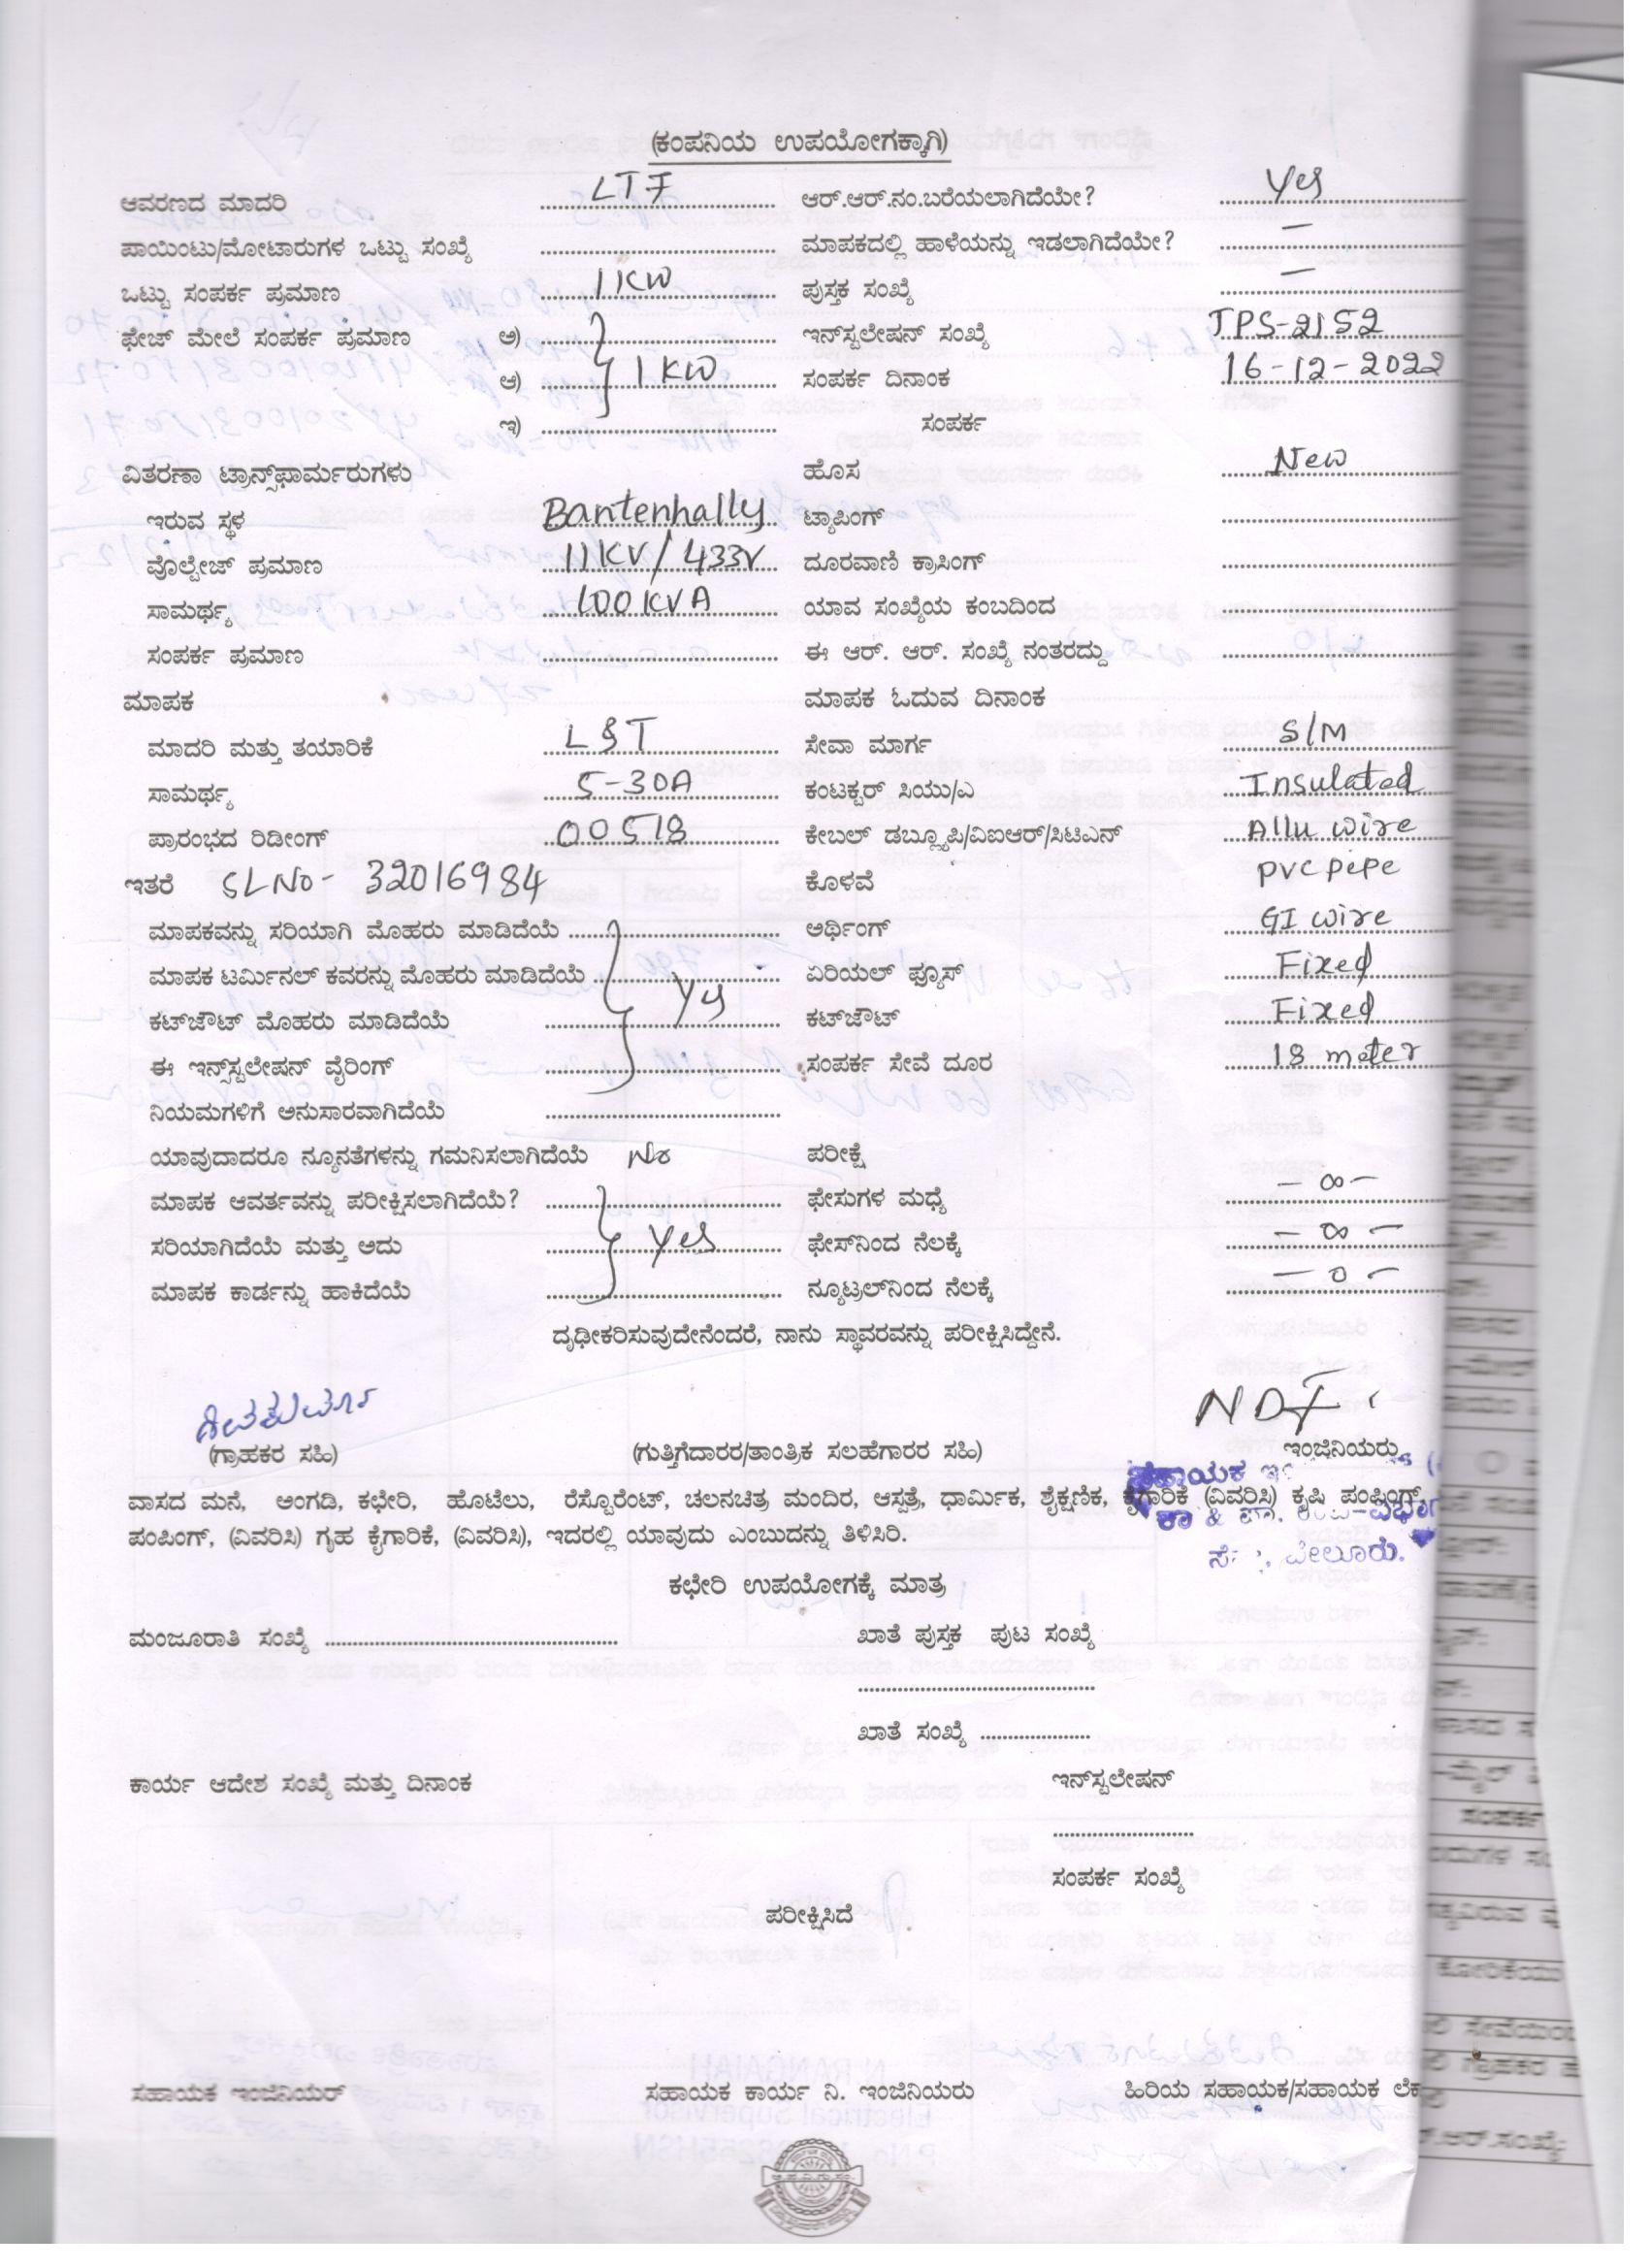 (ಕಂಪನಿಯ ಉಪಯೋಗಕ್ಕಾಗಿ)
ಆವರಣದ ಮಾದರಿ LTF ಆರ್.ಆರ್.ನಂ.ಬರೆಯಲಾಗಿದೆಯೇ? Yes
ಪಾಯಿಂಟು/ಮೋಟಾರುಗಳ ಒಟ್ಟು ಸಂಖ್ಯೆ ಮಾಪಕದಲ್ಲಿ ಹಾಳೆಯನ್ನು ಇಡಲಾಗಿದೆಯೇ? —
ಒಟ್ಟು ಸಂಪರ್ಕ ಪ್ರಮಾಣ 1KW ಪುಸ್ತಕ ಸಂಖ್ಯೆ —
ಫೇಜ್ ಮೇಲೆ ಸಂಪರ್ಕ ಪ್ರಮಾಣ ಅ) ಇನ್‌ಸ್ಟಲೇಷನ್ ಸಂಖ್ಯೆ TPS-2152
ಆ) 1KW ಸಂಪರ್ಕ ದಿನಾಂಕ 16-12-2022
ಇ) ಸಂಪರ್ಕ
ವಿತರಣಾ ಟ್ರಾನ್ಸ್‌ಫಾರ್ಮರುಗಳು ಹೊಸ New
ಇರುವ ಸ್ಥಳ Bantenhally ಟ್ಯಾಪಿಂಗ್
ವೊಲ್ಟೇಜ್ ಪ್ರಮಾಣ 11KV/433V ದೂರವಾಣಿ ಕ್ರಾಸಿಂಗ್
ಸಾಮರ್ಥ್ಯ 100KVA ಯಾವ ಸಂಖ್ಯೆಯ ಕಂಬದಿಂದ
ಸಂಪರ್ಕ ಪ್ರಮಾಣ ಈ ಆರ್. ಆರ್. ಸಂಖ್ಯೆ ನಂತರದ್ದು
ಮಾಪಕ ಮಾಪಕ ಓದುವ ದಿನಾಂಕ
ಮಾದರಿ ಮತ್ತು ತಯಾರಿಕೆ L&T ಸೇವಾ ಮಾರ್ಗ S/M
ಸಾಮರ್ಥ್ಯ 5-30A ಕಂಟಕ್ಟರ್ ಸಿಯು/ಎ Insulated
ಪ್ರಾರಂಭದ ರಿಡೀಂಗ್ 00518 ಕೇಬಲ್ ಡಬ್ಲ್ಯೂಪಿ/ವಿಐಆರ್/ಸಿಟಿಎನ್ Allu wire
ಇತರೆ SLNo- 32016984 ಕೊಳವೆ pvc pepe
ಮಾಪಕವನ್ನು ಸರಿಯಾಗಿ ಮೊಹರು ಮಾಡಿದೆಯೆ ಅರ್ಥಿಂಗ್ GI wire
ಮಾಪಕ ಟರ್ಮಿನಲ್ ಕವರನ್ನು ಮೊಹರು ಮಾಡಿದೆಯೆ Yes ಏರಿಯಲ್ ಫ್ಯೂಸ್ Fixed
ಕಟ್‌ಔಟ್ ಮೊಹರು ಮಾಡಿದೆಯೆ ಕಟ್‌ಔಟ್ Fixed
ಈ ಇನ್ಸ್‌ಸ್ಟಲೇಷನ್ ವೈರಿಂಗ್ ಸಂಪರ್ಕ ಸೇವೆ ದೂರ 18 meter
ನಿಯಮಗಳಿಗೆ ಅನುಸಾರವಾಗಿದೆಯೆ
ಯಾವುದಾದರೂ ನ್ಯೂನತೆಗಳನ್ನು ಗಮನಿಸಲಾಗಿದೆಯೆ No ಪರೀಕ್ಷೆ
ಮಾಪಕ ಆವರ್ತವನ್ನು ಪರೀಕ್ಷಿಸಲಾಗಿದೆಯೆ? ಫೇಸುಗಳ ಮಧ್ಯೆ — ∞ —
ಸರಿಯಾಗಿದೆಯೆ ಮತ್ತು ಅದು Yes ಫೇಸ್‌ನಿಂದ ನೆಲಕ್ಕೆ — ∞ —
ಮಾಪಕ ಕಾರ್ಡನ್ನು ಹಾಕಿದೆಯೆ ನ್ಯೂಟ್ರಲ್‌ನಿಂದ ನೆಲಕ್ಕೆ — 0 —
ದೃಢೀಕರಿಸುವುದೇನೆಂದರೆ, ನಾನು ಸ್ಥಾವರವನ್ನು ಪರೀಕ್ಷಿಸಿದ್ದೇನೆ.
ಶಿವಕುಮಾರ
(ಗ್ರಾಹಕರ ಸಹಿ) (ಗುತ್ತಿಗೆದಾರರ/ತಾಂತ್ರಿಕ ಸಲಹೆಗಾರರ ಸಹಿ) ಇಂಜಿನಿಯರ್
ಸಹಾಯಕ
ವಾಸದ ಮನೆ, ಅಂಗಡಿ, ಕಛೇರಿ, ಹೊಟೆಲು, ರೆಸ್ಟೊರೆಂಟ್, ಚಲನಚಿತ್ರ ಮಂದಿರ, ಆಸ್ಪತ್ರೆ, ಧಾರ್ಮಿಕ, ಶೈಕ್ಷಣಿಕ, ಕೈಗಾರಿಕೆ (ವಿವರಿಸಿ) ಕೃಷಿ ಪಂಪಿಂಗ್,
ಪಂಪಿಂಗ್, (ವಿವರಿಸಿ) ಗೃಹ ಕೈಗಾರಿಕೆ, (ವಿವರಿಸಿ), ಇದರಲ್ಲಿ ಯಾವುದು ಎಂಬುದನ್ನು ತಿಳಿಸಿರಿ.
ಬೇಲೂರು.
ಕಛೇರಿ ಉಪಯೋಗಕ್ಕೆ ಮಾತ್ರ
ಮಂಜೂರಾತಿ ಸಂಖ್ಯೆ ಖಾತೆ ಪುಸ್ತಕ ಪುಟ ಸಂಖ್ಯೆ
ಖಾತೆ ಸಂಖ್ಯೆ
ಕಾರ್ಯ ಆದೇಶ ಸಂಖ್ಯೆ ಮತ್ತು ದಿನಾಂಕ ಇನ್‌ಸ್ಟಲೇಷನ್
ಸಂಪರ್ಕ ಸಂಖ್ಯೆ
ಪರೀಕ್ಷಿಸಿದೆ
ಸಹಾಯಕ ಇಂಜಿನಿಯರ್ ಸಹಾಯಕ ಕಾರ್ಯ ನಿ. ಇಂಜಿನಿಯರು ಹಿರಿಯ ಸಹಾಯಕ/ಸಹಾಯಕ ಲೆಕ್ಕ